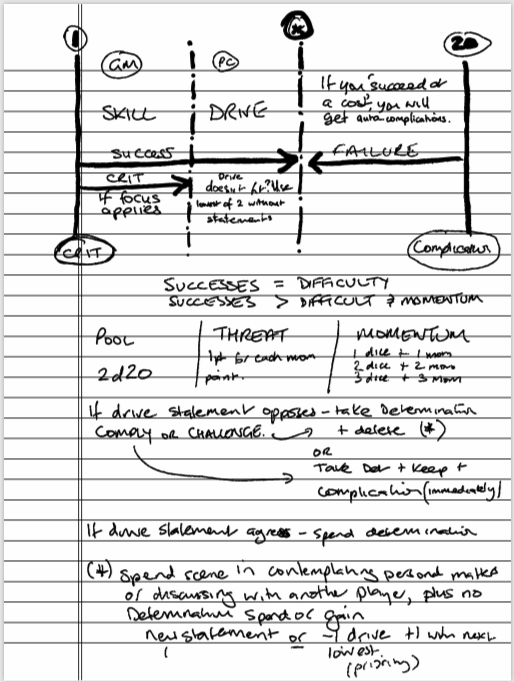 1 * 20
GM PC
If you "succeed at
a cost", you will
get auto complications.
SKILL DRIVE
SUCCESS FAILURE
CRIT
If focus
applies
Drive
doesn't fit? Use
lowest of 2 without
statements
CRIT Complication
SUCCESSES = DIFFICULTY
SUCCESSES > DIFFICULT MOMENTUM
POOL THREAT MOMENTUM
1pt for each mom
point.
1 dice + 1 mom
2d20
2 dice + 2 mom
3 dice + 3 mom
If drive statement opposes - take Determination
COMPLY OR CHALLENGE. + delete (*)
OR
Take Det + Keep +
complication (immediately)
If drive statement agrees - spend determination
(*) Spend scene in contemplating personal matters
or discussing with another player, plus no
Determination Spend or gain
new statement or -1 drive +1 with next
lowest